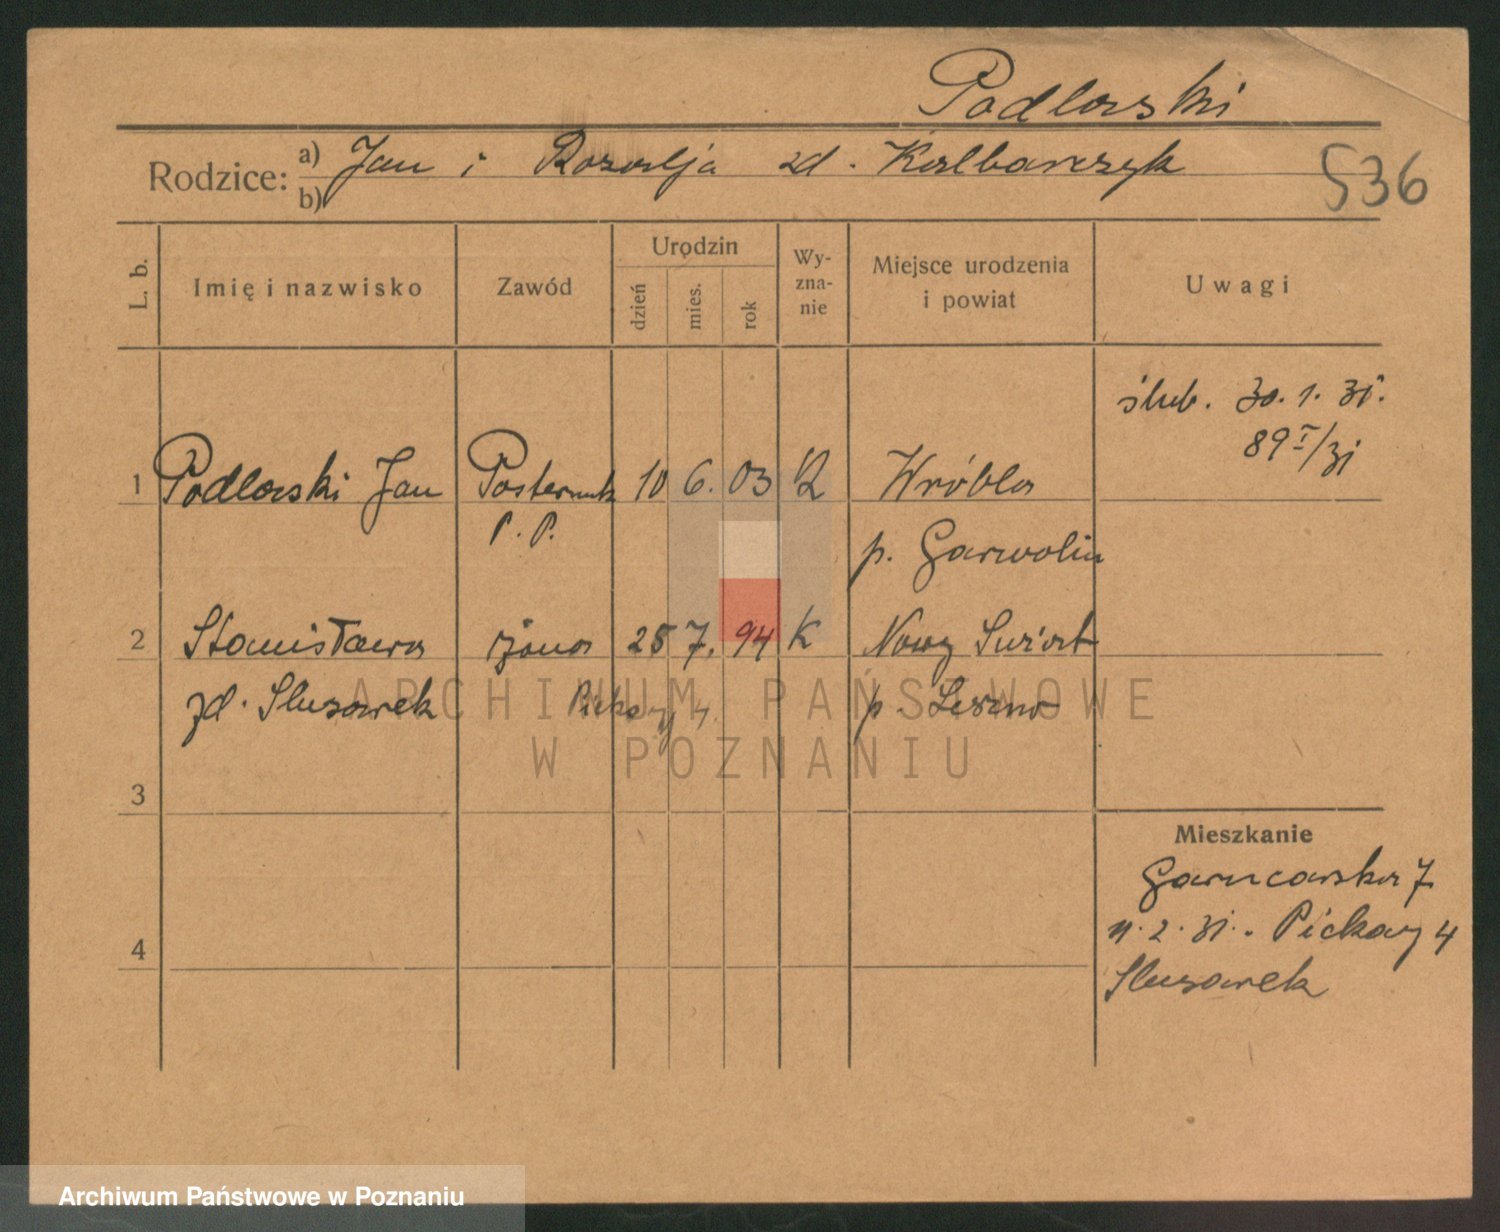 Podlaski
Rodzice: a) Jan i Rozalja zd. Kalbarczyk
b)
536
L. b. Imię i nazwisko Zawód Urodzin dzień mies. rok Wyznanie Miejsce urodzenia i powiat Uwagi
ślub. 30. 1. 31.
89 I/31
1 Podlaski Jan Posterunk 10 6. 03 K Wróble
P. P. p. Garwolin
2 Stanisława żona 25 7. 94 K Nowy Świat
zd. Slusarek Piekary 4. p. Leszno
ARCHIWUM PAŃSTWOWE
W POZNANIU
3
Mieszkanie
Garncarska 7
11. 2. 31. Piekary 4
4
Slusarek
Archiwum Państwowe w Poznaniu